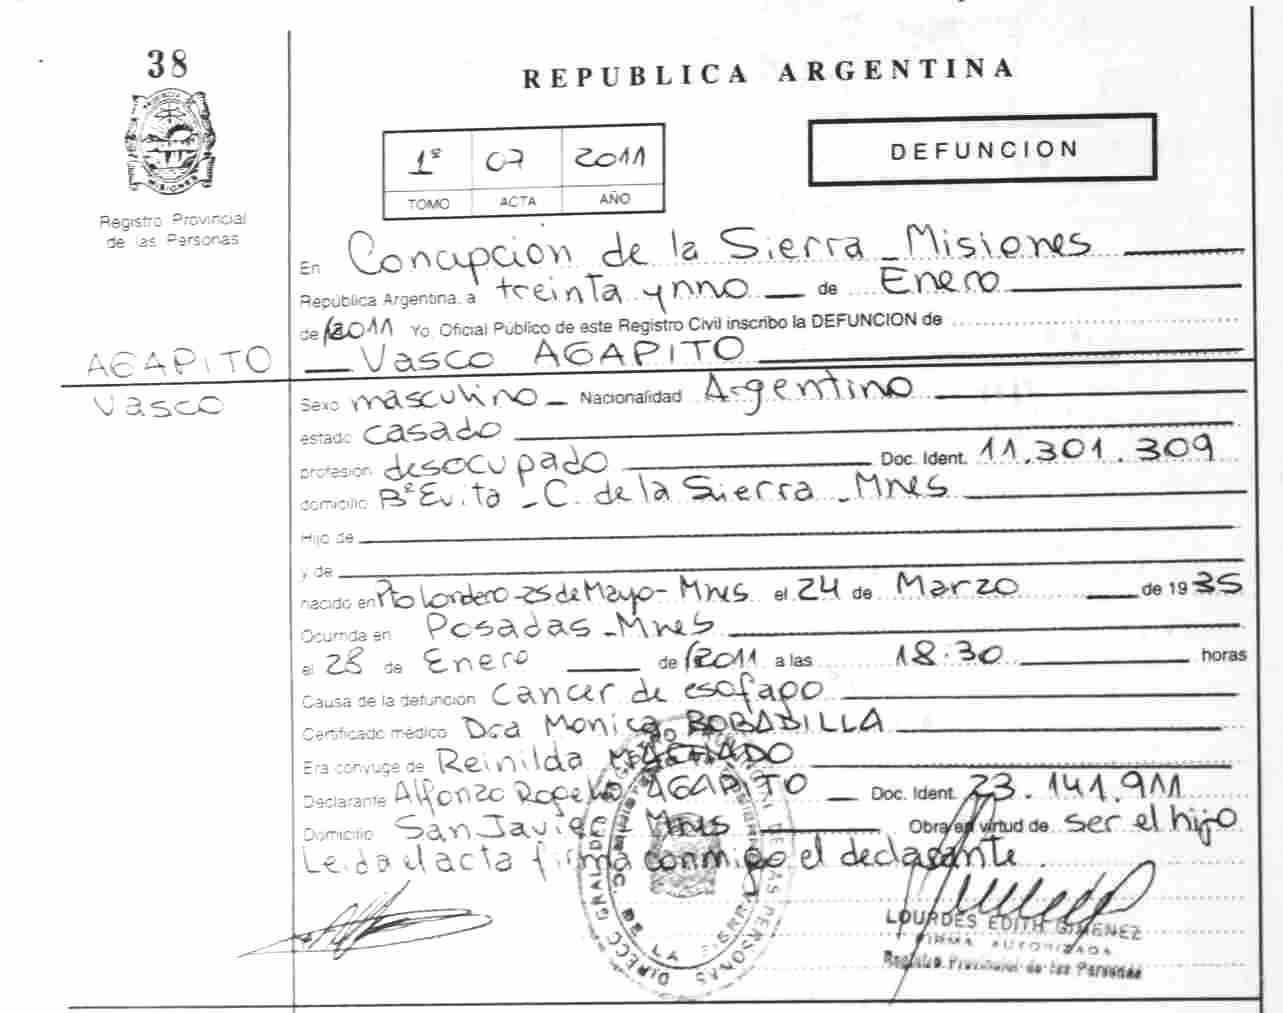 38
REPUBLICA ARGENTINA
1º 07 2011
TOMO ACTA AÑO
DEFUNCION
MISIONES
Registro Provincial
de las Personas
En Concepción de la Sierra - Misiones
República Argentina, a treinta y uno de Enero
de 2011 Yo, Oficial Público de este Registro Civil inscribo la DEFUNCION de
AGAPITO
Vasco
Vasco AGAPITO
Sexo masculino - Nacionalidad Argentino
estado casado
profesión desocupado Doc. Ident. 11.301.309
domicilio Bº Evita - C. de la Sierra - Mnes
Hijo de
y de
nacido en Pto Londero - 25 de Mayo - Mnes el 24 de Marzo de 1935
Ocurrida en Posadas - Mnes
el 28 de Enero de 2011 a las 18.30 horas
Causa de la defunción cancer de esofago
Certificado médico Dra Monica BOBADILLA
Era cónyuge de Reinilda
Declarante Alfonzo Rogelio AGAPITO Doc. Ident. 23.141.911
Domicilio San Javier - Mnes Obra en virtud de ser el hijo
Leida el acta firma conmigo el declarante.
DIRECC GRAL DEL DE LAS PERSONAS
DE LA SIERRA
LOURDES EDITH GIMENEZ
FIRMA AUTORIZADA
Registro Provincial de las Personas